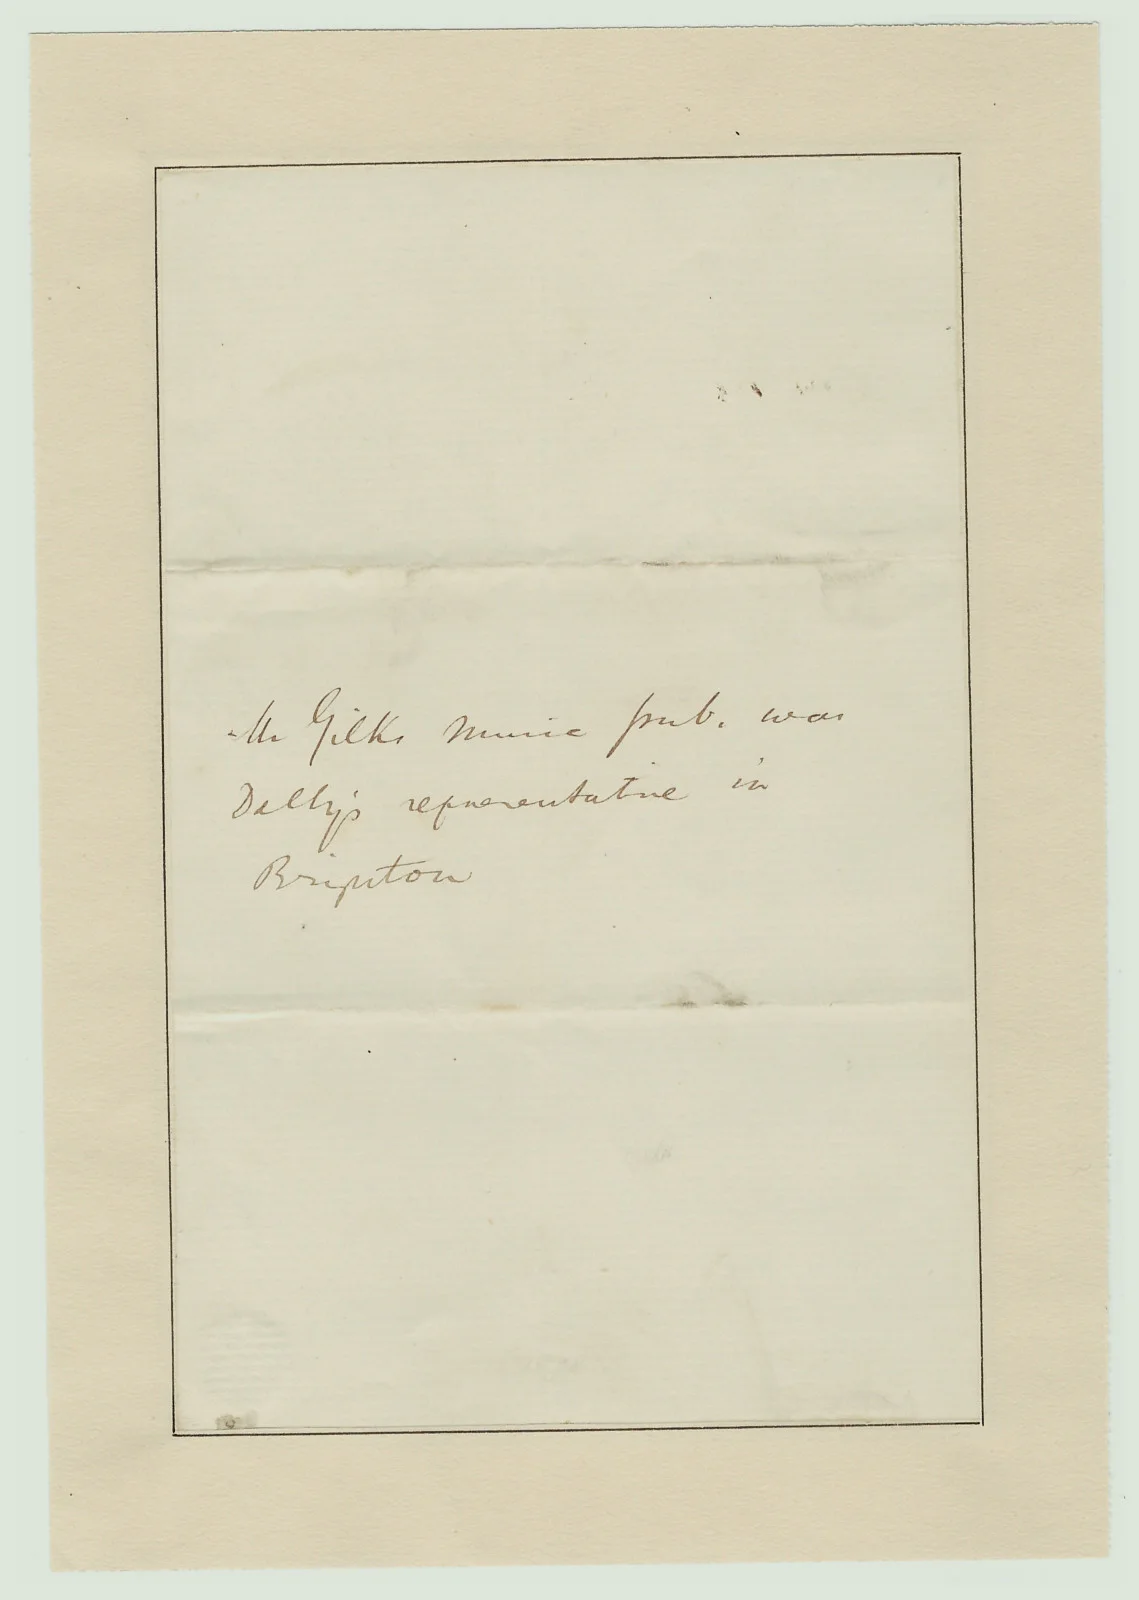 Mr Gilks Music pub. was
Dalby's representative in
Brighton